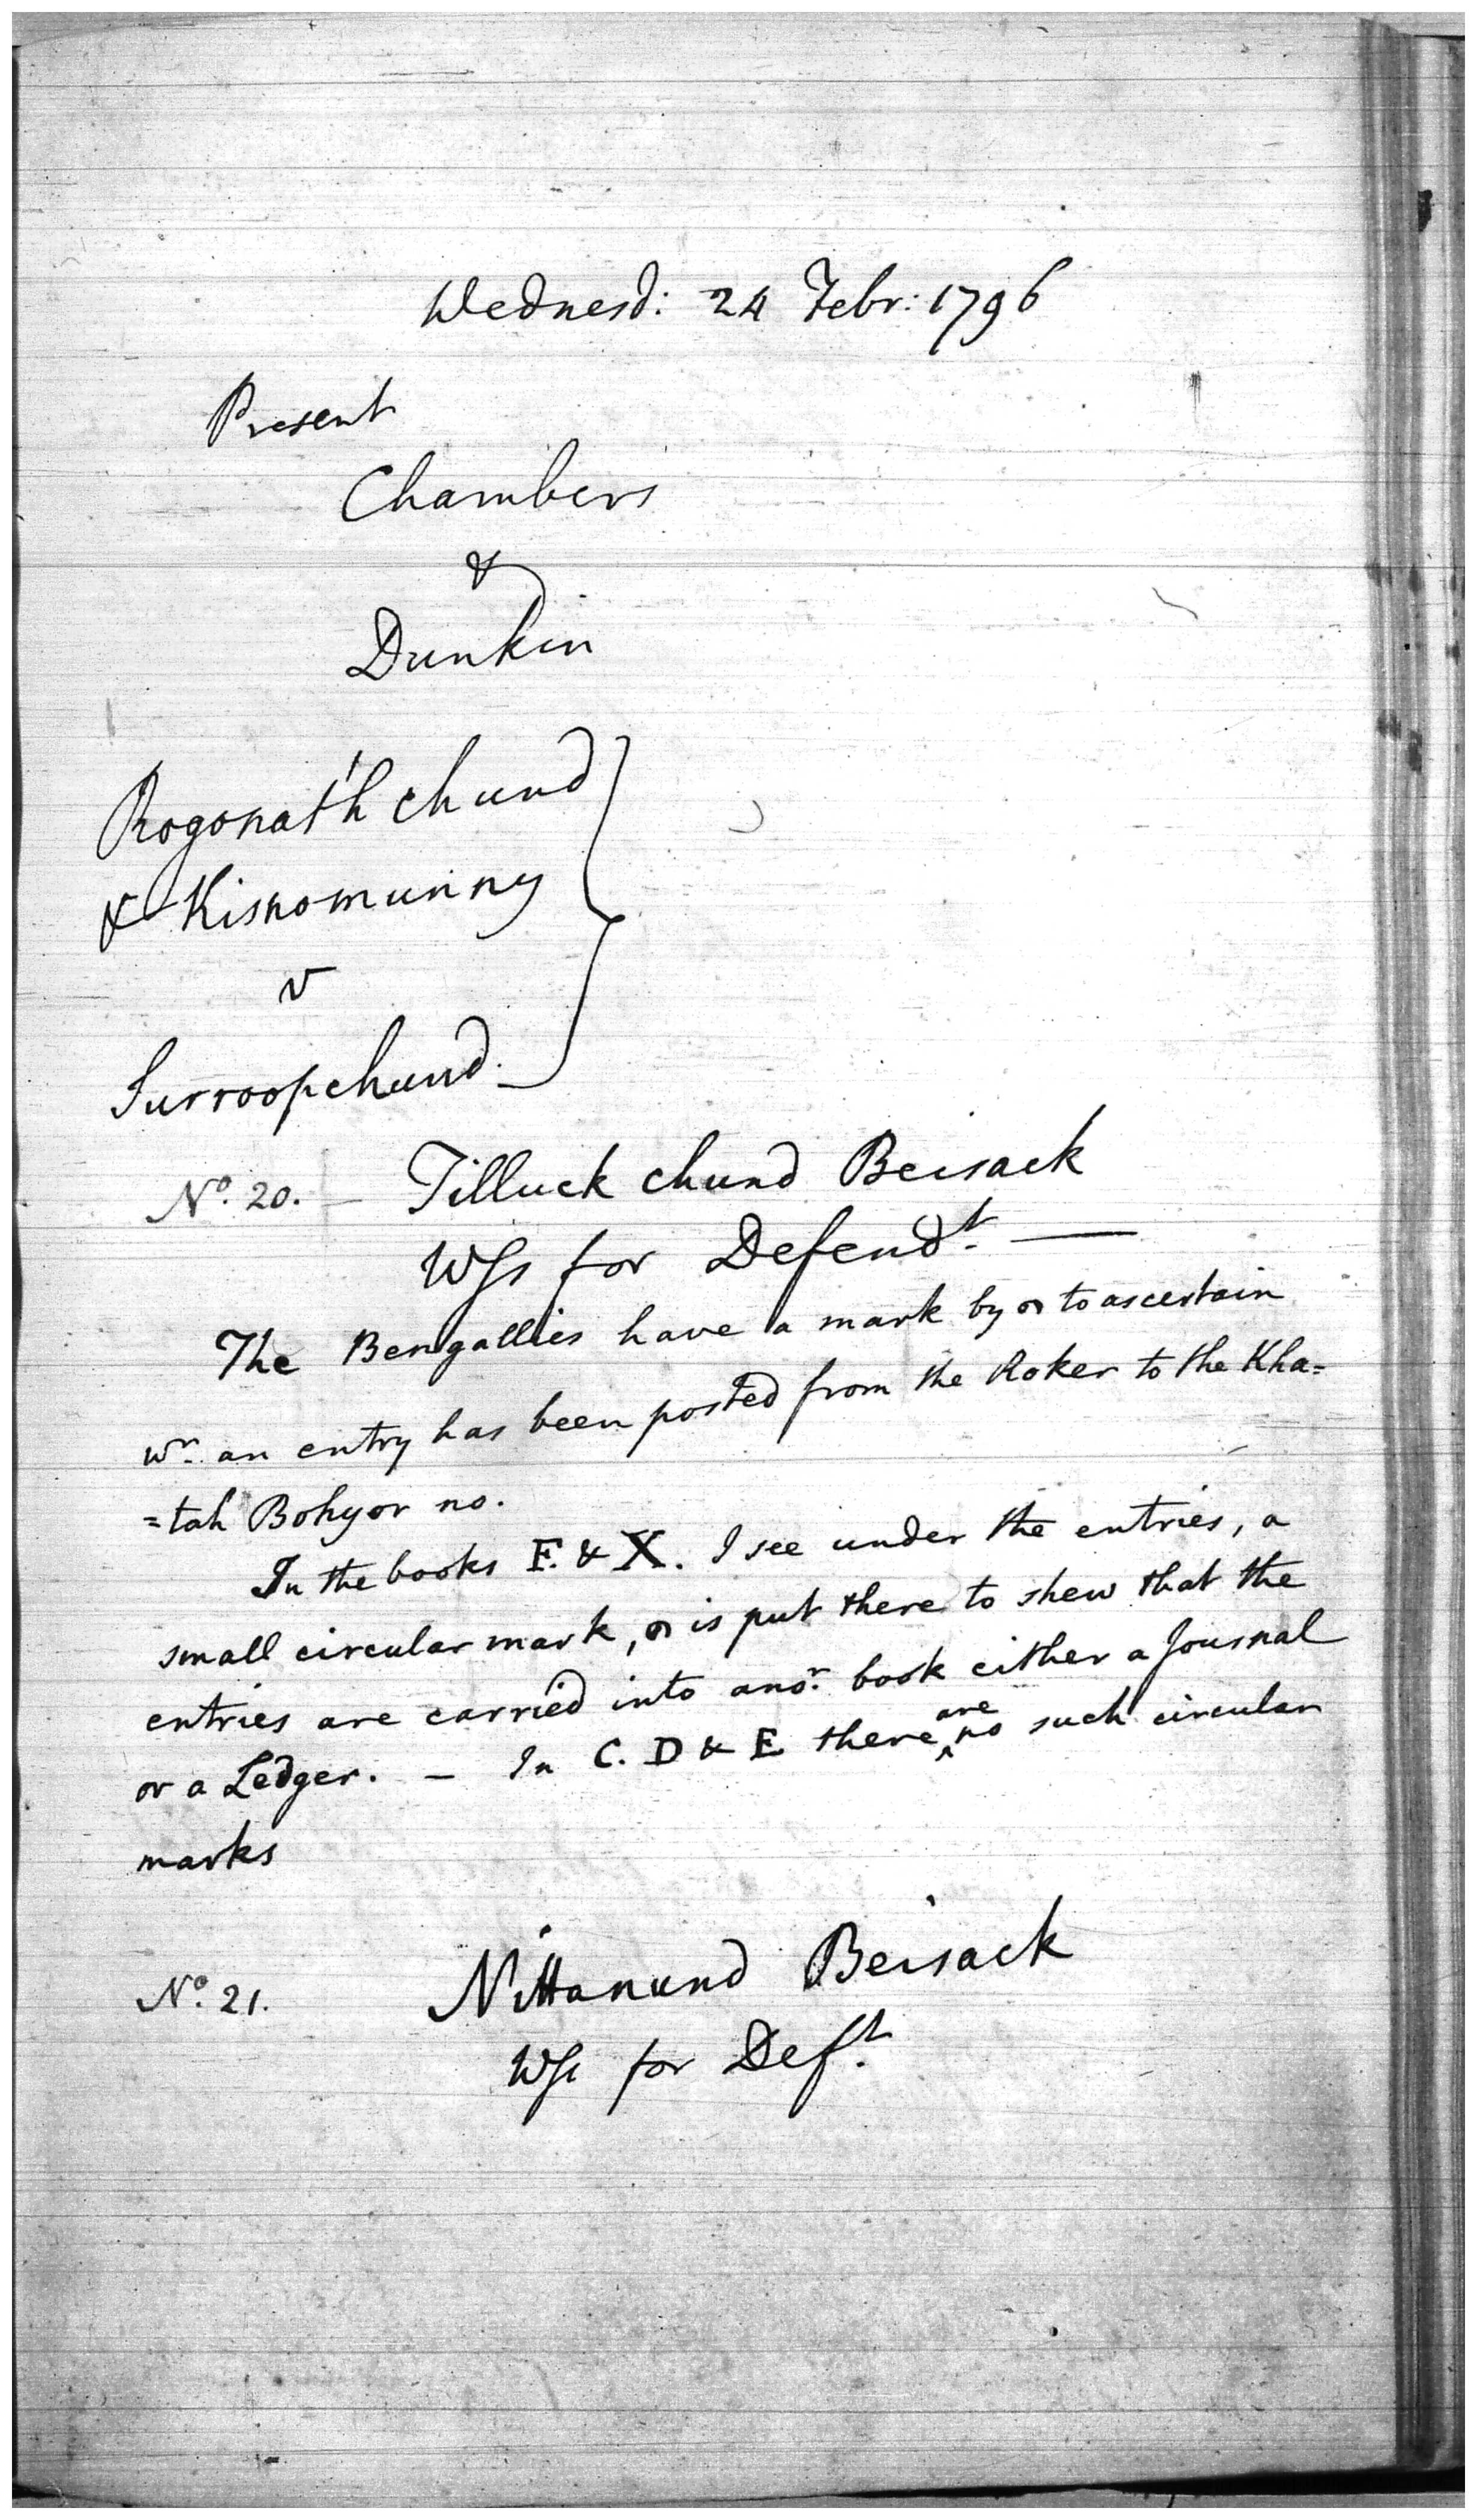 Wednesd: 24 Febr: 1796
Present
Chambers
&
Dunkin
Rogonath Chund
& Kisnomunny
v
Surroopchund.
No. 20. — Tilluck Chund Beisack
Wss for Defendt. —
The Bengallies have a mark by to ascertain
wr. an entry has been posted from the Roker to the Kha=
=tah Bohy or no.
In the books F. & X. I see under the entries, a
small circular mark, is put there to shew that the
entries are carried into anor. book either a Journal
or a Ledger. — In C. D & E there are no such circular
marks
No. 21. Nittanund Beisack
Wss for Deft.